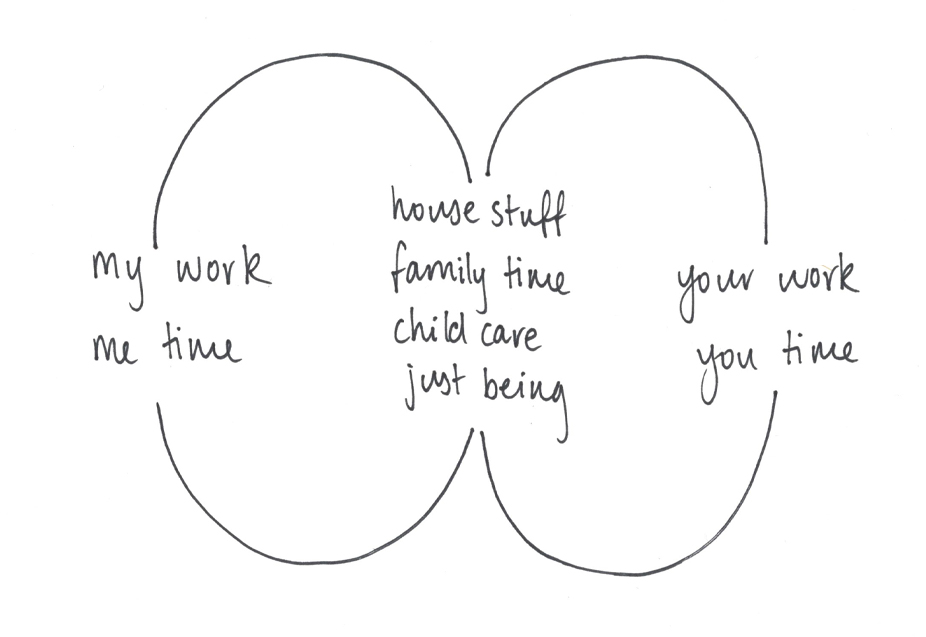 my work
me time
house stuff
family time
child care
just being
your work
you time